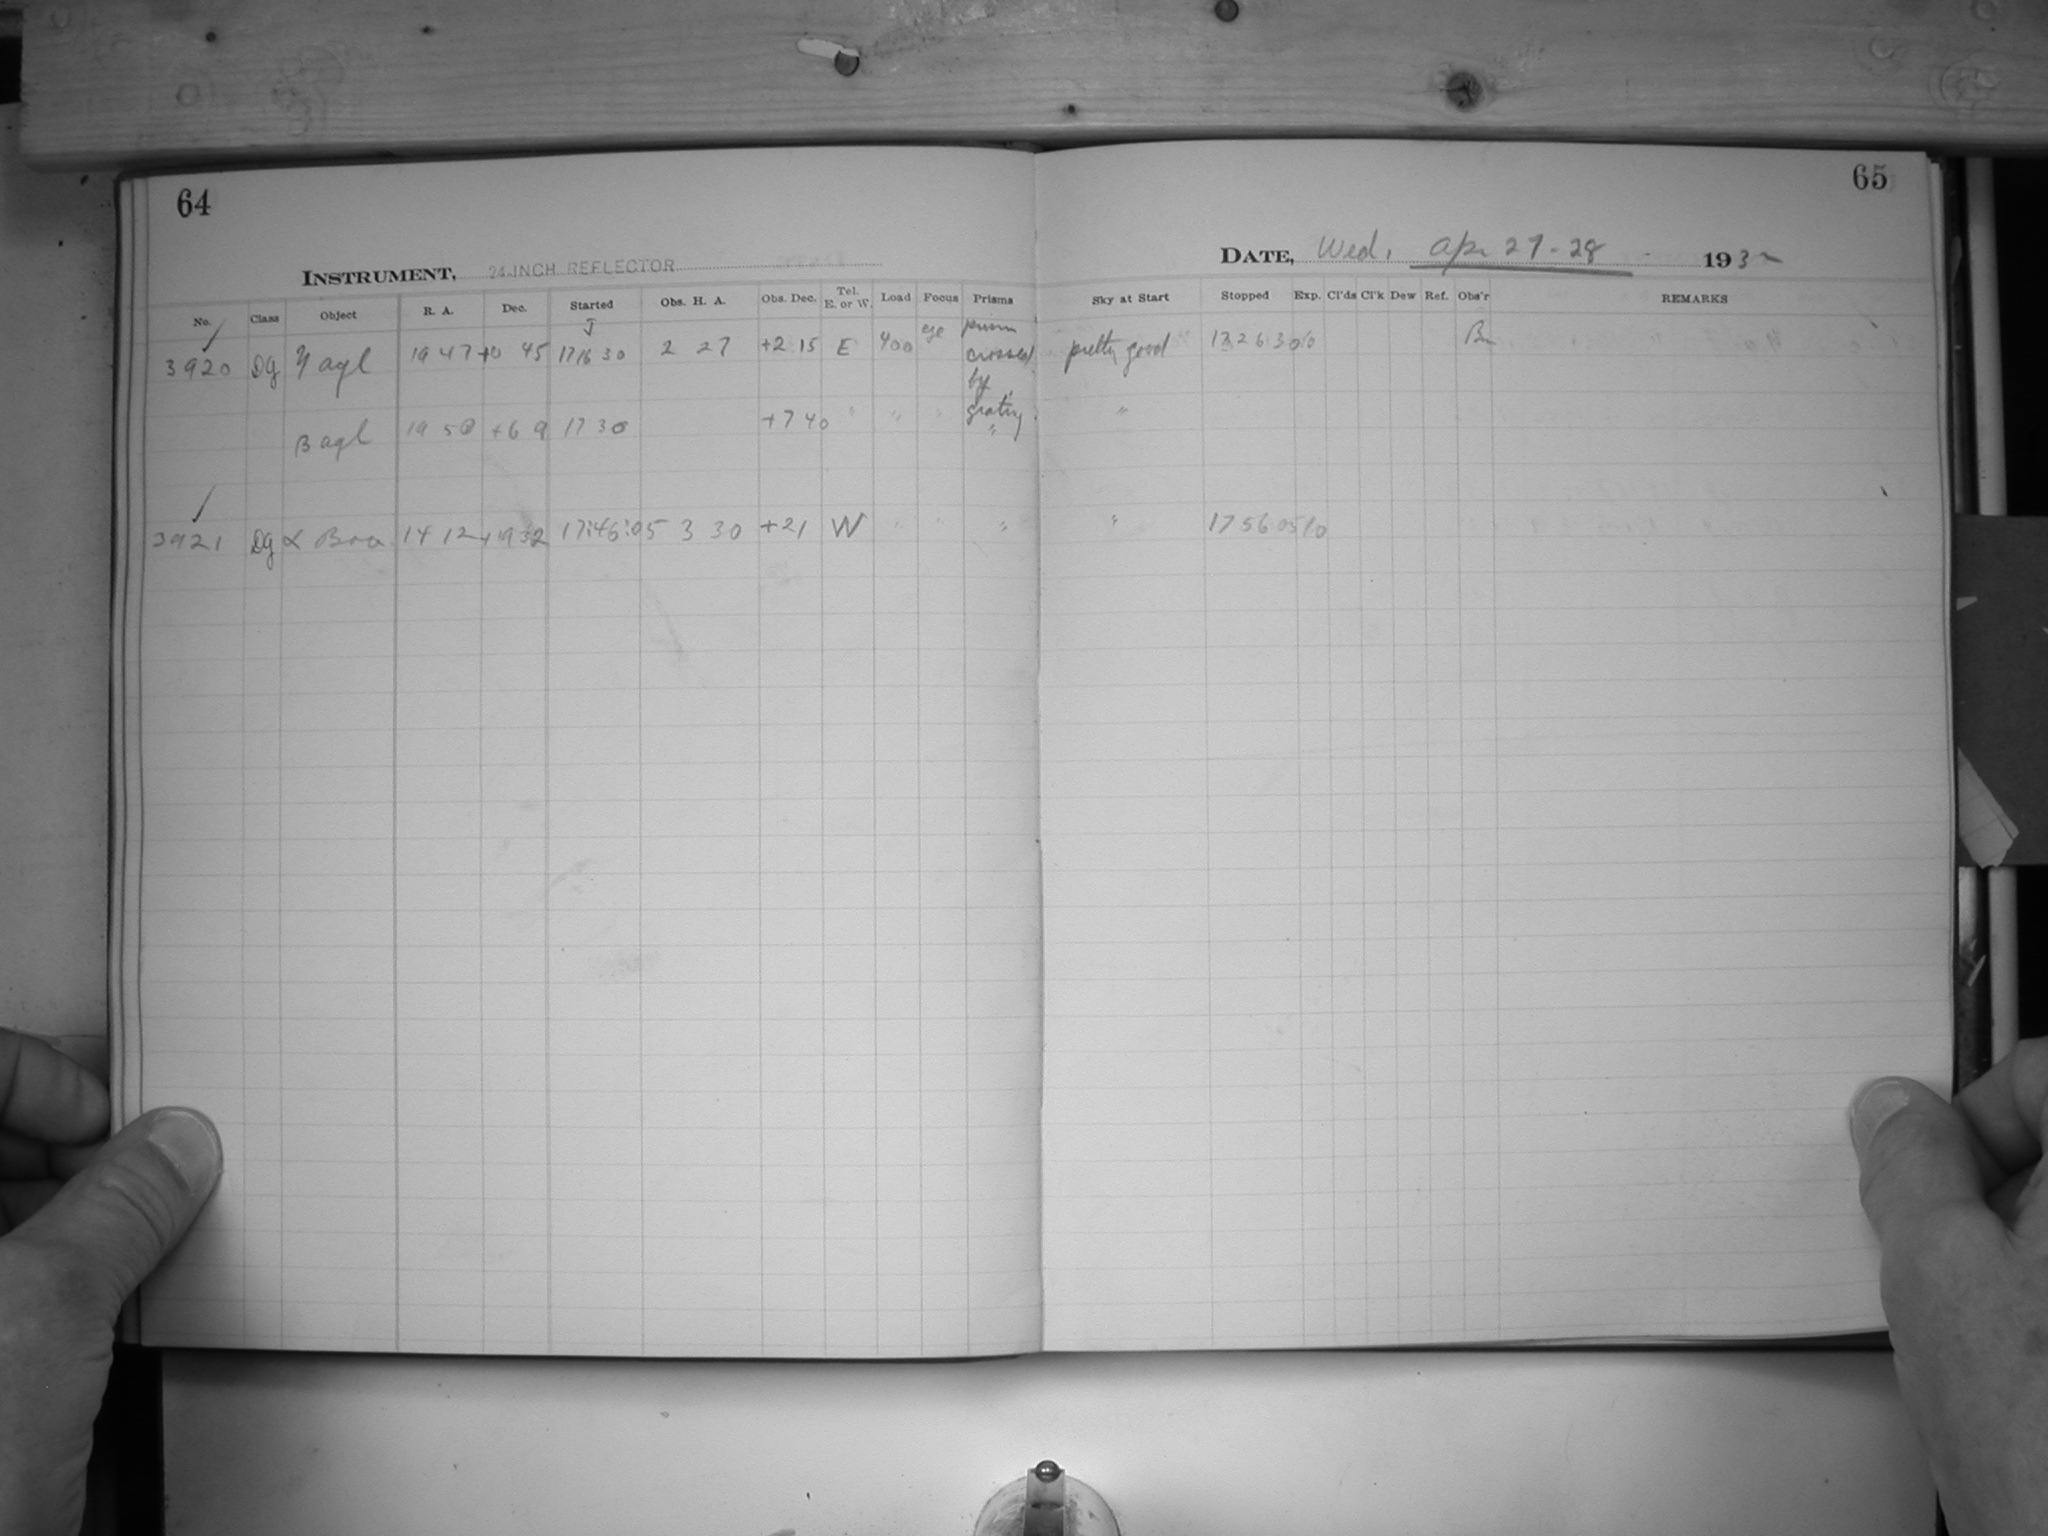 64
65
INSTRUMENT, 24-INCH REFLECTOR
DATE, Wed, Apr 27-28 1932
No. Class Object R. A. Dec. Started Obs. H. A. Obs. Dec. Tel. E. or W. Load Focus Prisms Sky at Start Stopped Exp. Cl'ds Cl'k Dew Ref. Obs'r REMARKS
3920 Dg γ aql 19 47 +10 45 17 16 30 2 27 +2 15 E 400 eye prism crossed by grating pretty good 17 26 30 10 Bn
B aql 19 50 +6 9 17 30 +7 40 " " " " "
3921 Dg α Boo 14 12 +19 32 17:46:05 3 30 +21 W " " " " 17 56 05 10